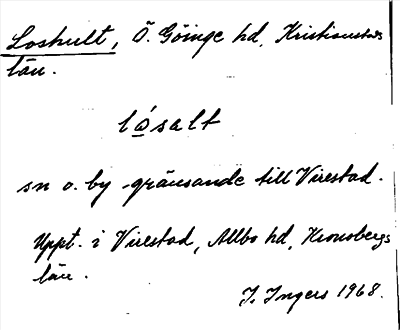 Loshult, Ö. Göinge hd, Kristianstads
län.
lósalt
sn o. by gränsande till Virestad.
Uppt. i Virestad, Allbo hd, Kronobergs
län.
I. Ingers 1968.